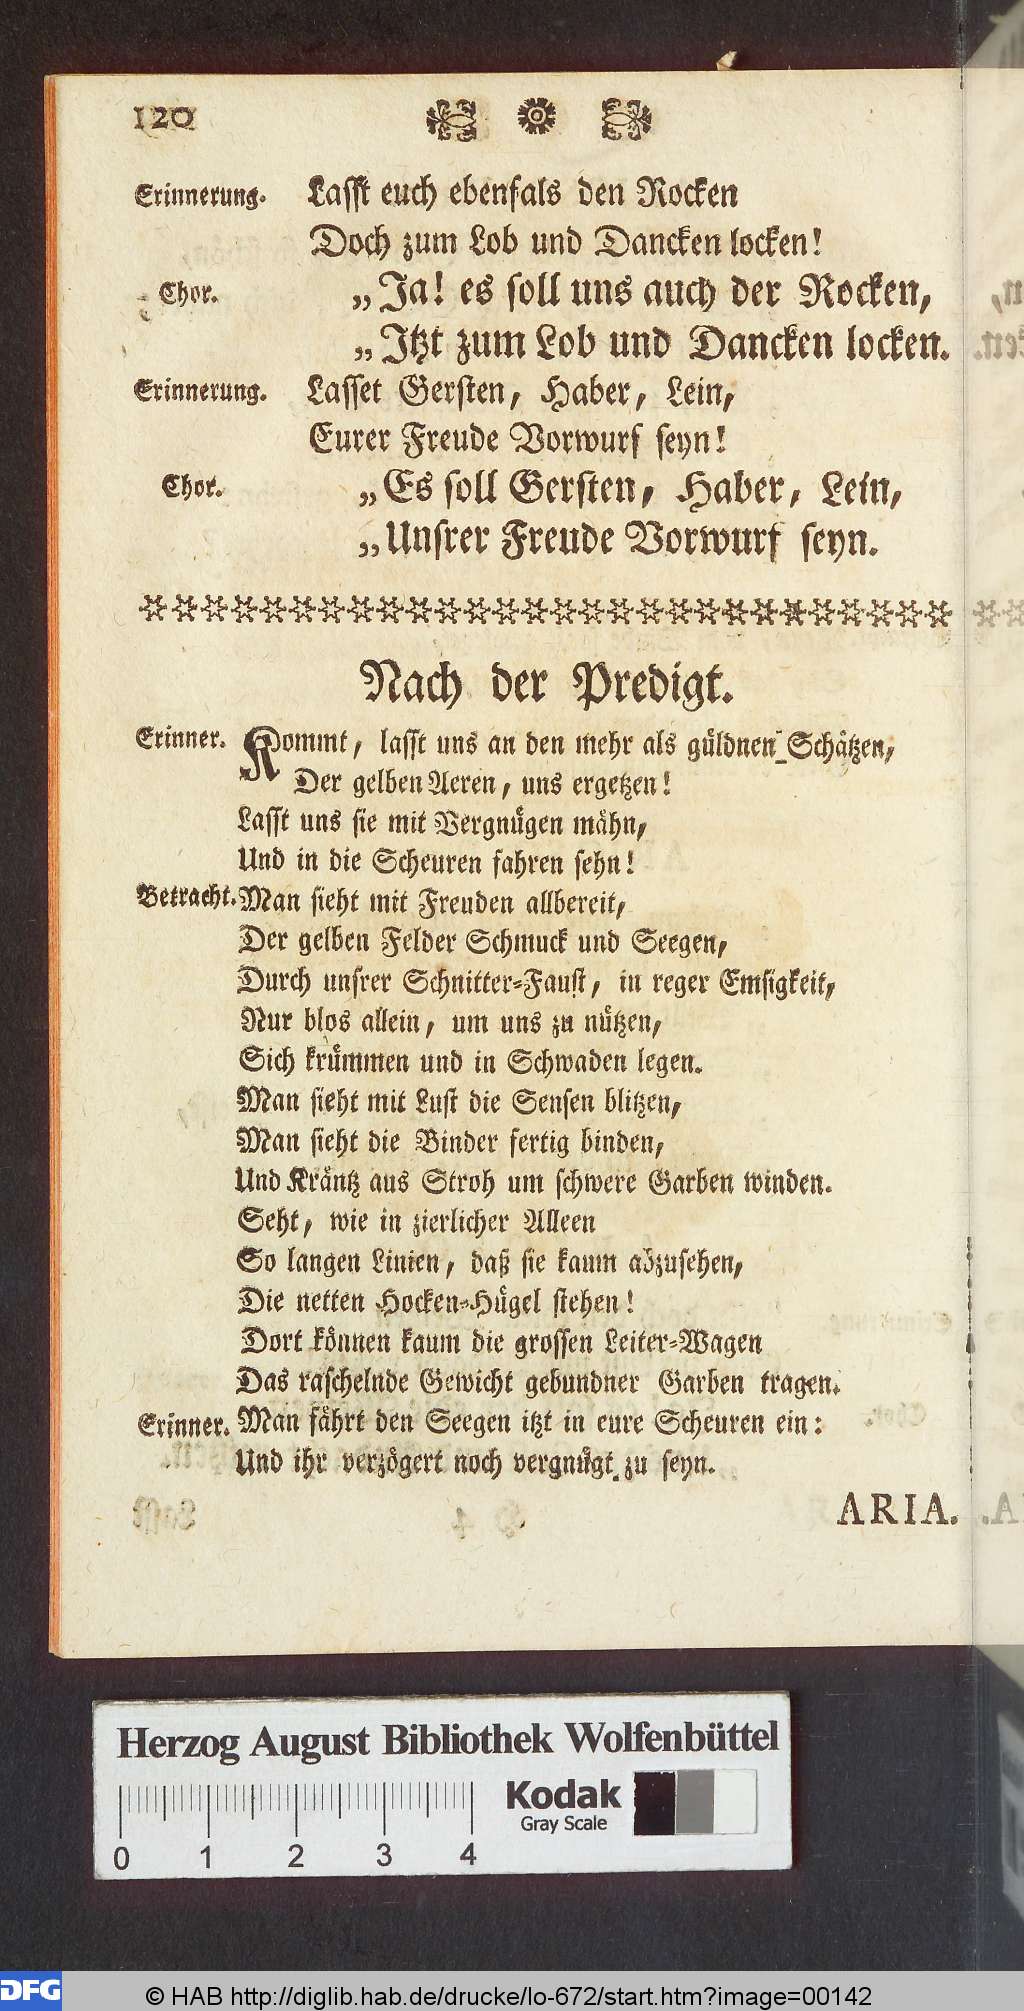 120
Erinnerung. Lasst euch ebenfals den Rocken
Doch zum Lob und Dancken locken!
Chor. „Ja! es soll uns auch der Rocken,
„Itzt zum Lob und Dancken locken.
Erinnerung. Lasset Gersten, Haber, Lein,
Eurer Freude Vorwurf seyn!
Chor. „Es soll Gersten, Haber, Lein,
„Unsrer Freude Vorwurf seyn.
Nach der Predigt.
Erinner. Kommt, lasst uns an den mehr als güldnen Schätzen,
Der gelben Aeren, uns ergetzen!
Lasst uns sie mit Vergnügen mähn,
Und in die Scheuren fahren sehn!
Betracht. Man sieht mit Freuden allbereit,
Der gelben Felder Schmuck und Seegen,
Durch unsrer Schnitter-Faust, in reger Emsigkeit,
Nur blos allein, um uns zu nützen,
Sich krümmen und in Schwaden legen.
Man sieht mit Lust die Sensen blitzen,
Man sieht die Binder fertig binden,
Und Kräntz aus Stroh um schwere Garben winden.
Seht, wie in zierlicher Alleen
So langen Linien, daß sie kaum abzusehen,
Die netten Hocken-Hügel stehen!
Dort können kaum die grossen Leiter-Wagen
Das raschelnde Gewicht gebundner Garben tragen.
Erinner. Man fährt den Seegen itzt in eure Scheuren ein:
Und ihr verzögert noch vergnügt zu seyn.
ARIA.
Herzog August Bibliothek Wolfenbüttel
Kodak
Gray Scale
0 1 2 3 4
DFG © HAB http://diglib.hab.de/drucke/lo-672/start.htm?image=00142